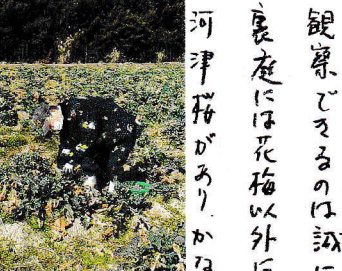 観察できるのは誠に
裏庭には花梅以外に
河津桜があり、かな